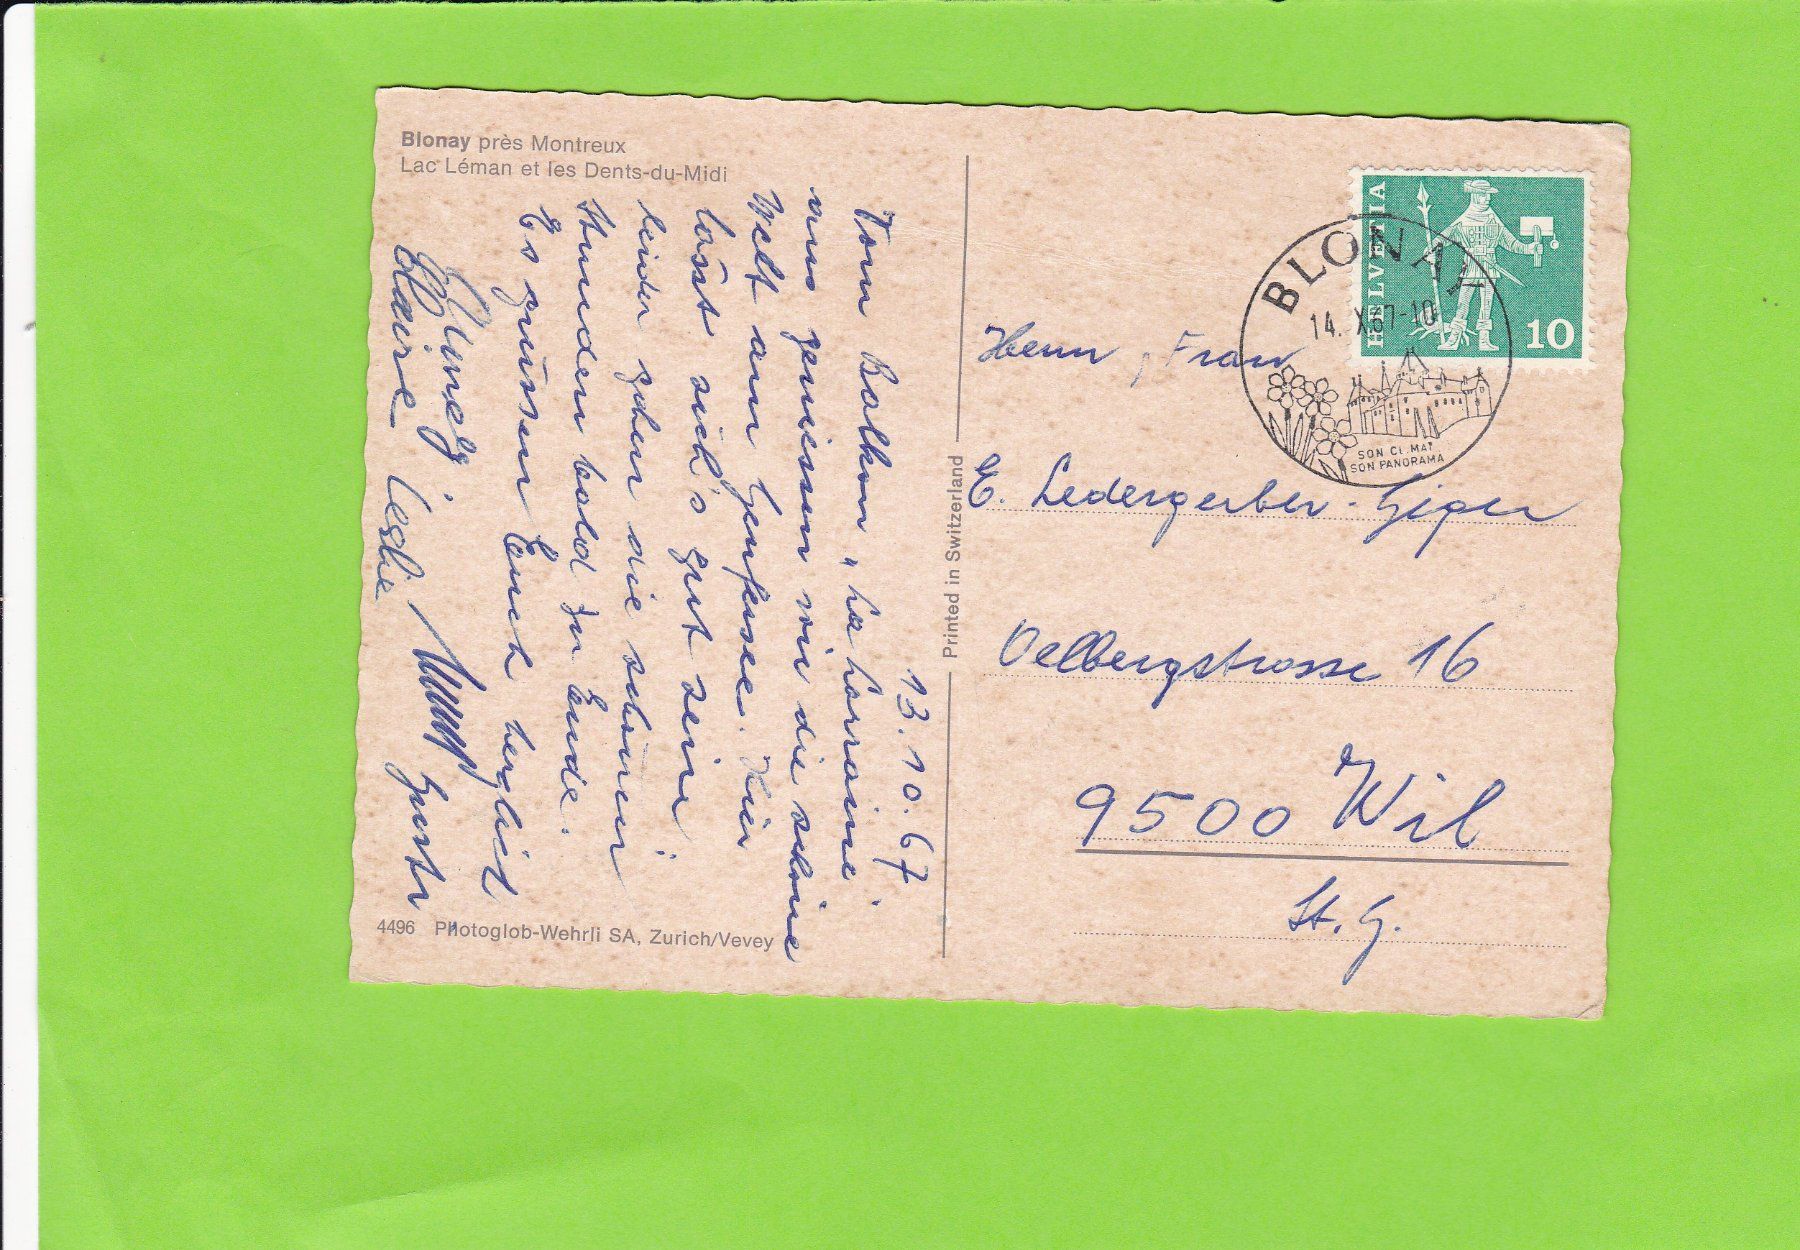 Blonay près Montreux
Lac Léman et les Dents-du-Midi
13.10.67
Vom Balkon „La Lorraine"
aus geniessen wir die schöne
Welt am Genfersee. Hier
lässt sich's gut sein!
leider gehen die schönen
Stunden bald zu Ende.
Es grüssen Euch herzlich
Claire Leslie
4496 Photoglob-Wehrli SA, Zurich/Vevey
Printed in Switzerland
HELVETIA
10
BLONAY
14. X.67-10
SON CLIMAT
SON PANORAMA
Herrn, Frau
E. Ledergerber-Giger
Oelbergstrasse 16
9500 Wil
St. G.